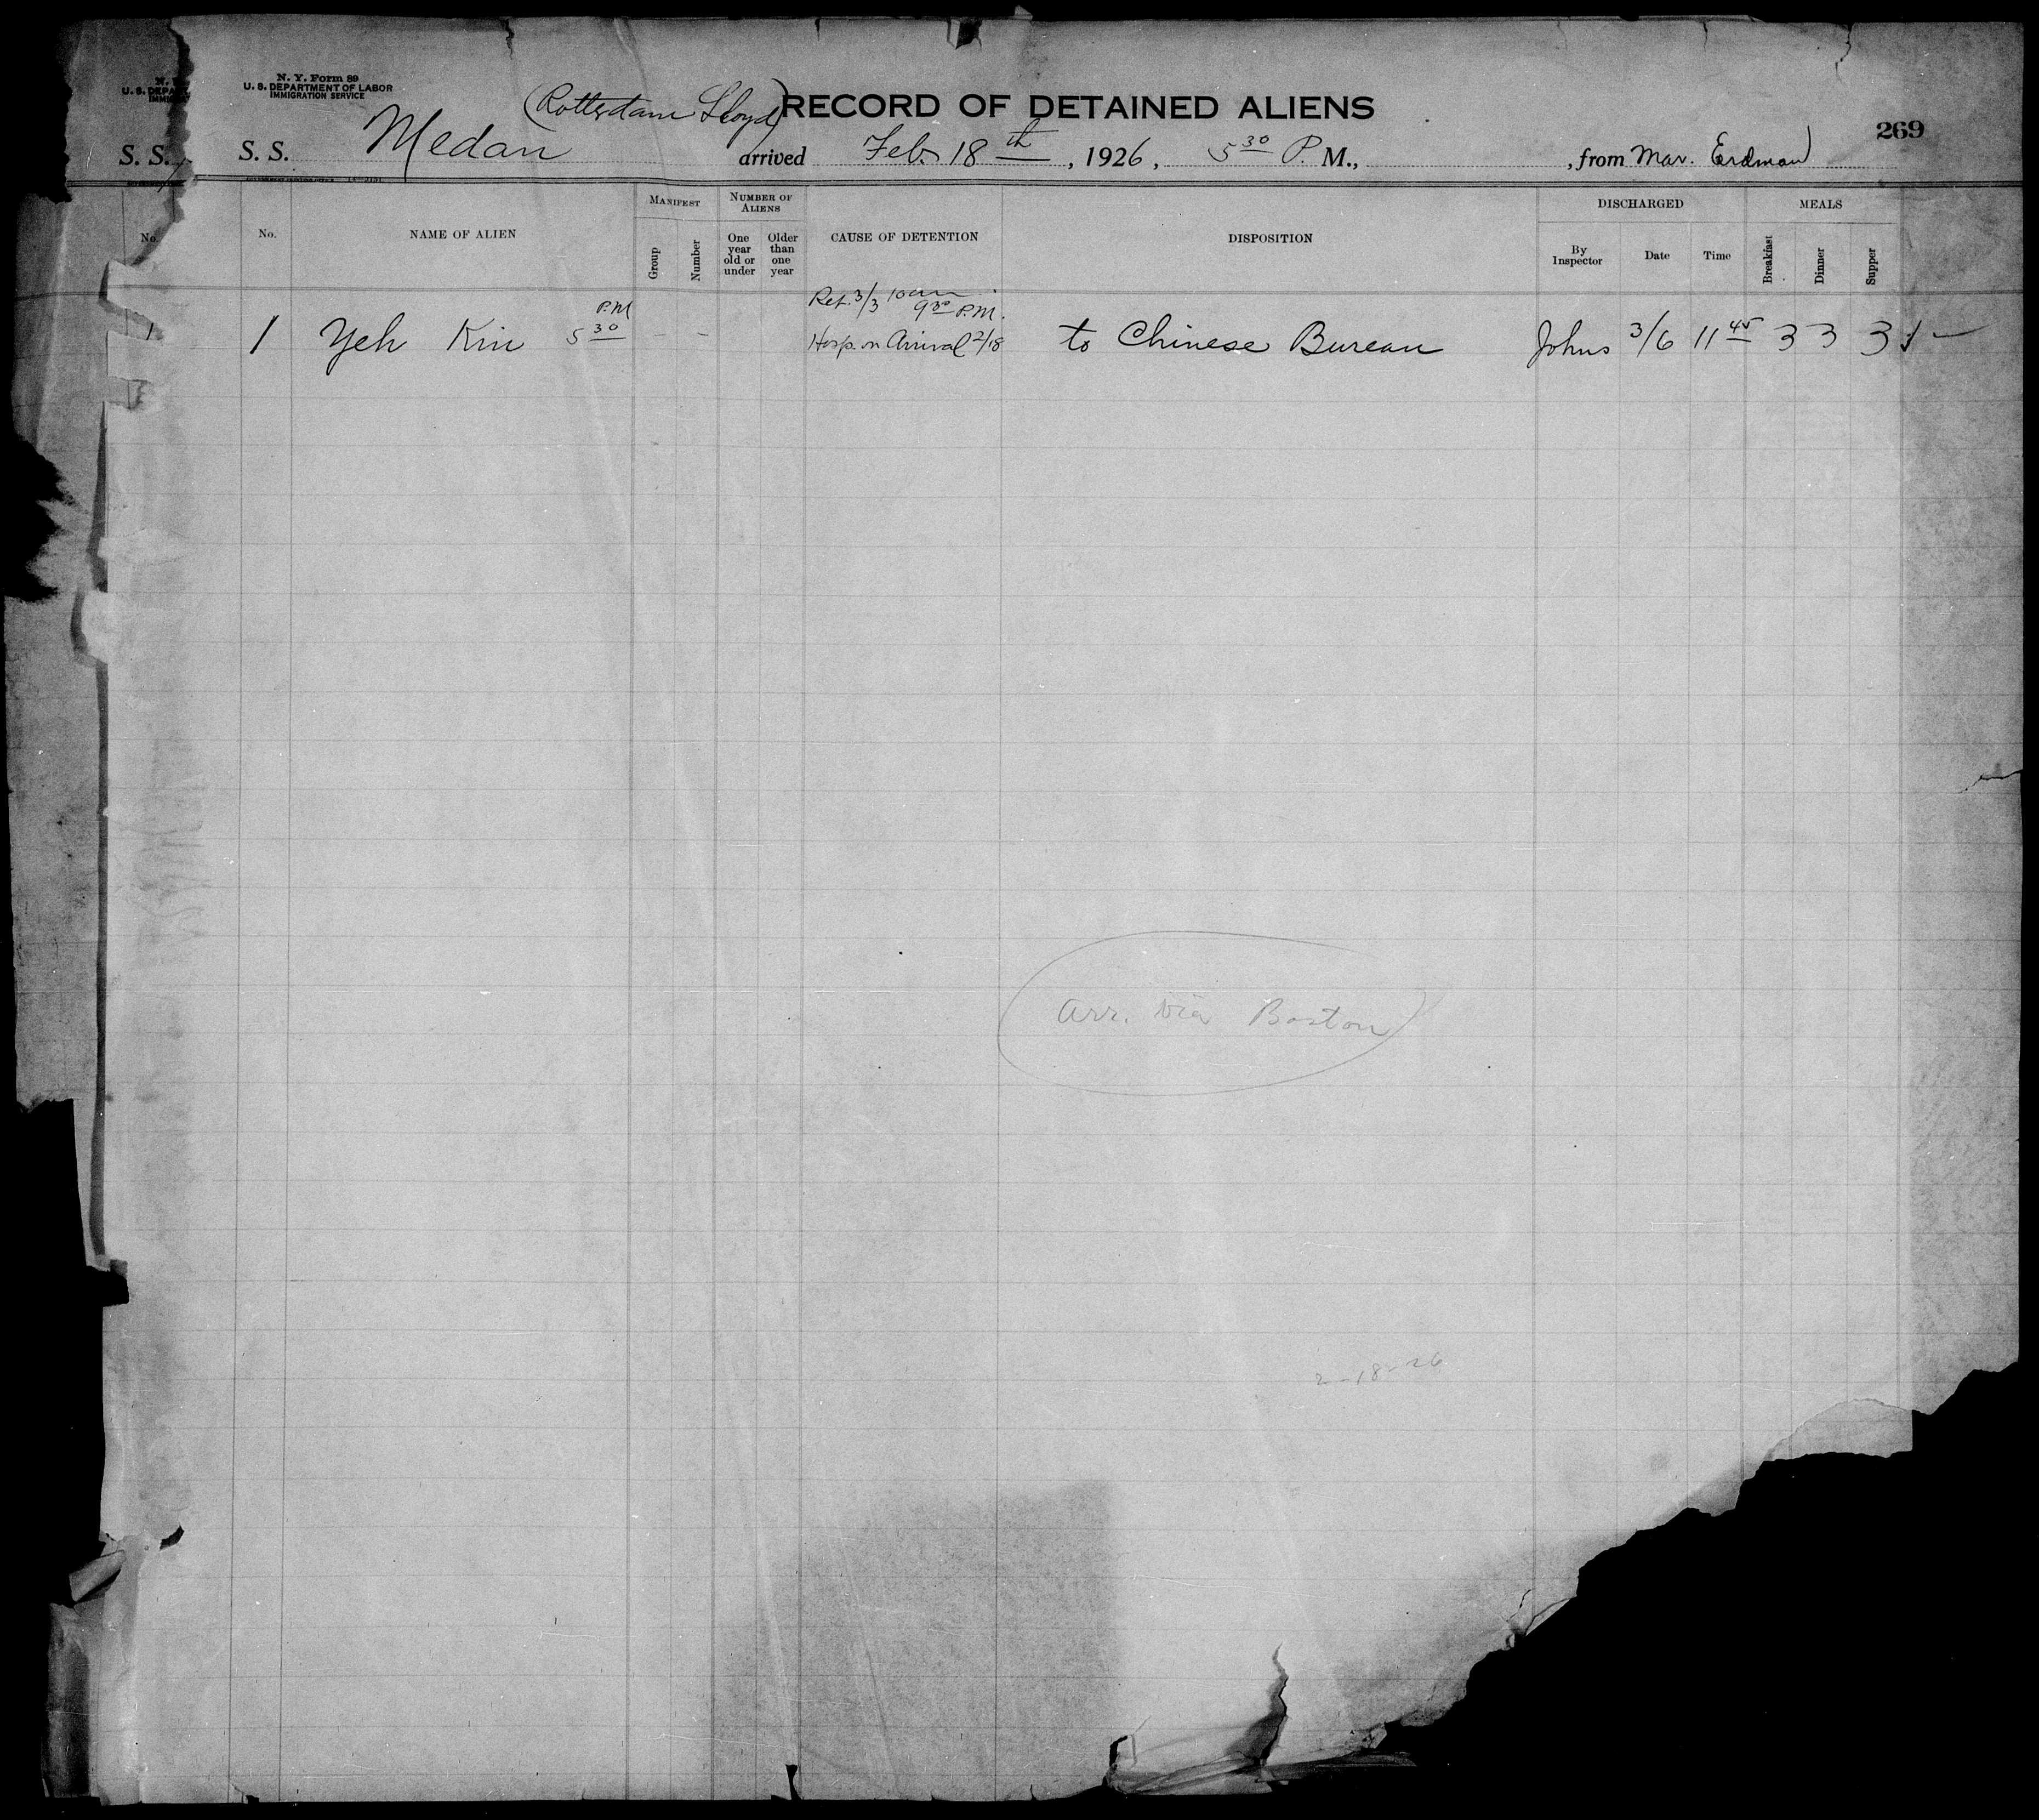 N. Y. Form 89
U. S. DEPARTMENT OF LABOR
IMMIGRATION SERVICE
(Rotterdam Lloyd) RECORD OF DETAINED ALIENS
269
S. S. S. S. Medan arrived Feb. 18th, 1926, 5 30 P. M., , from Mar. Erdman
No. No. NAME OF ALIEN MANIFEST Group Number NUMBER OF ALIENS One year old or under Older than one year CAUSE OF DETENTION DISPOSITION DISCHARGED By Inspector Date Time MEALS Breakfast Dinner Supper
Ret. 3/3 10 am
P.M 9 30 P.M.
1 1 Yeh Kin 5 30 – – Hosp. on Arrival 2/18 to Chinese Bureau Johns 3/6 11 45 3 3 3
Arr. via Boston
2-18-26